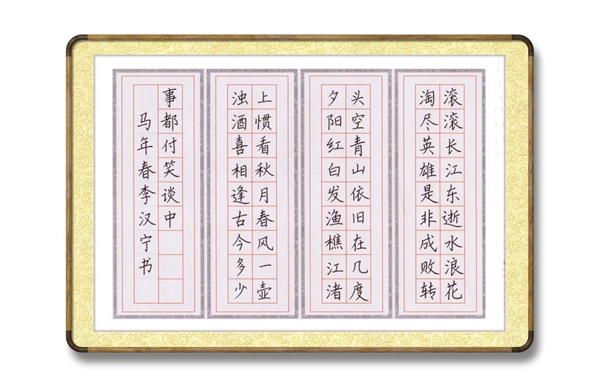 滚滚长江东逝水浪花
淘尽英雄是非成败转
头空青山依旧在几度
夕阳红白发渔樵江渚
上惯看秋月春风一壶
浊酒喜相逢古今多少
事都付笑谈中
马年春李汉宁书